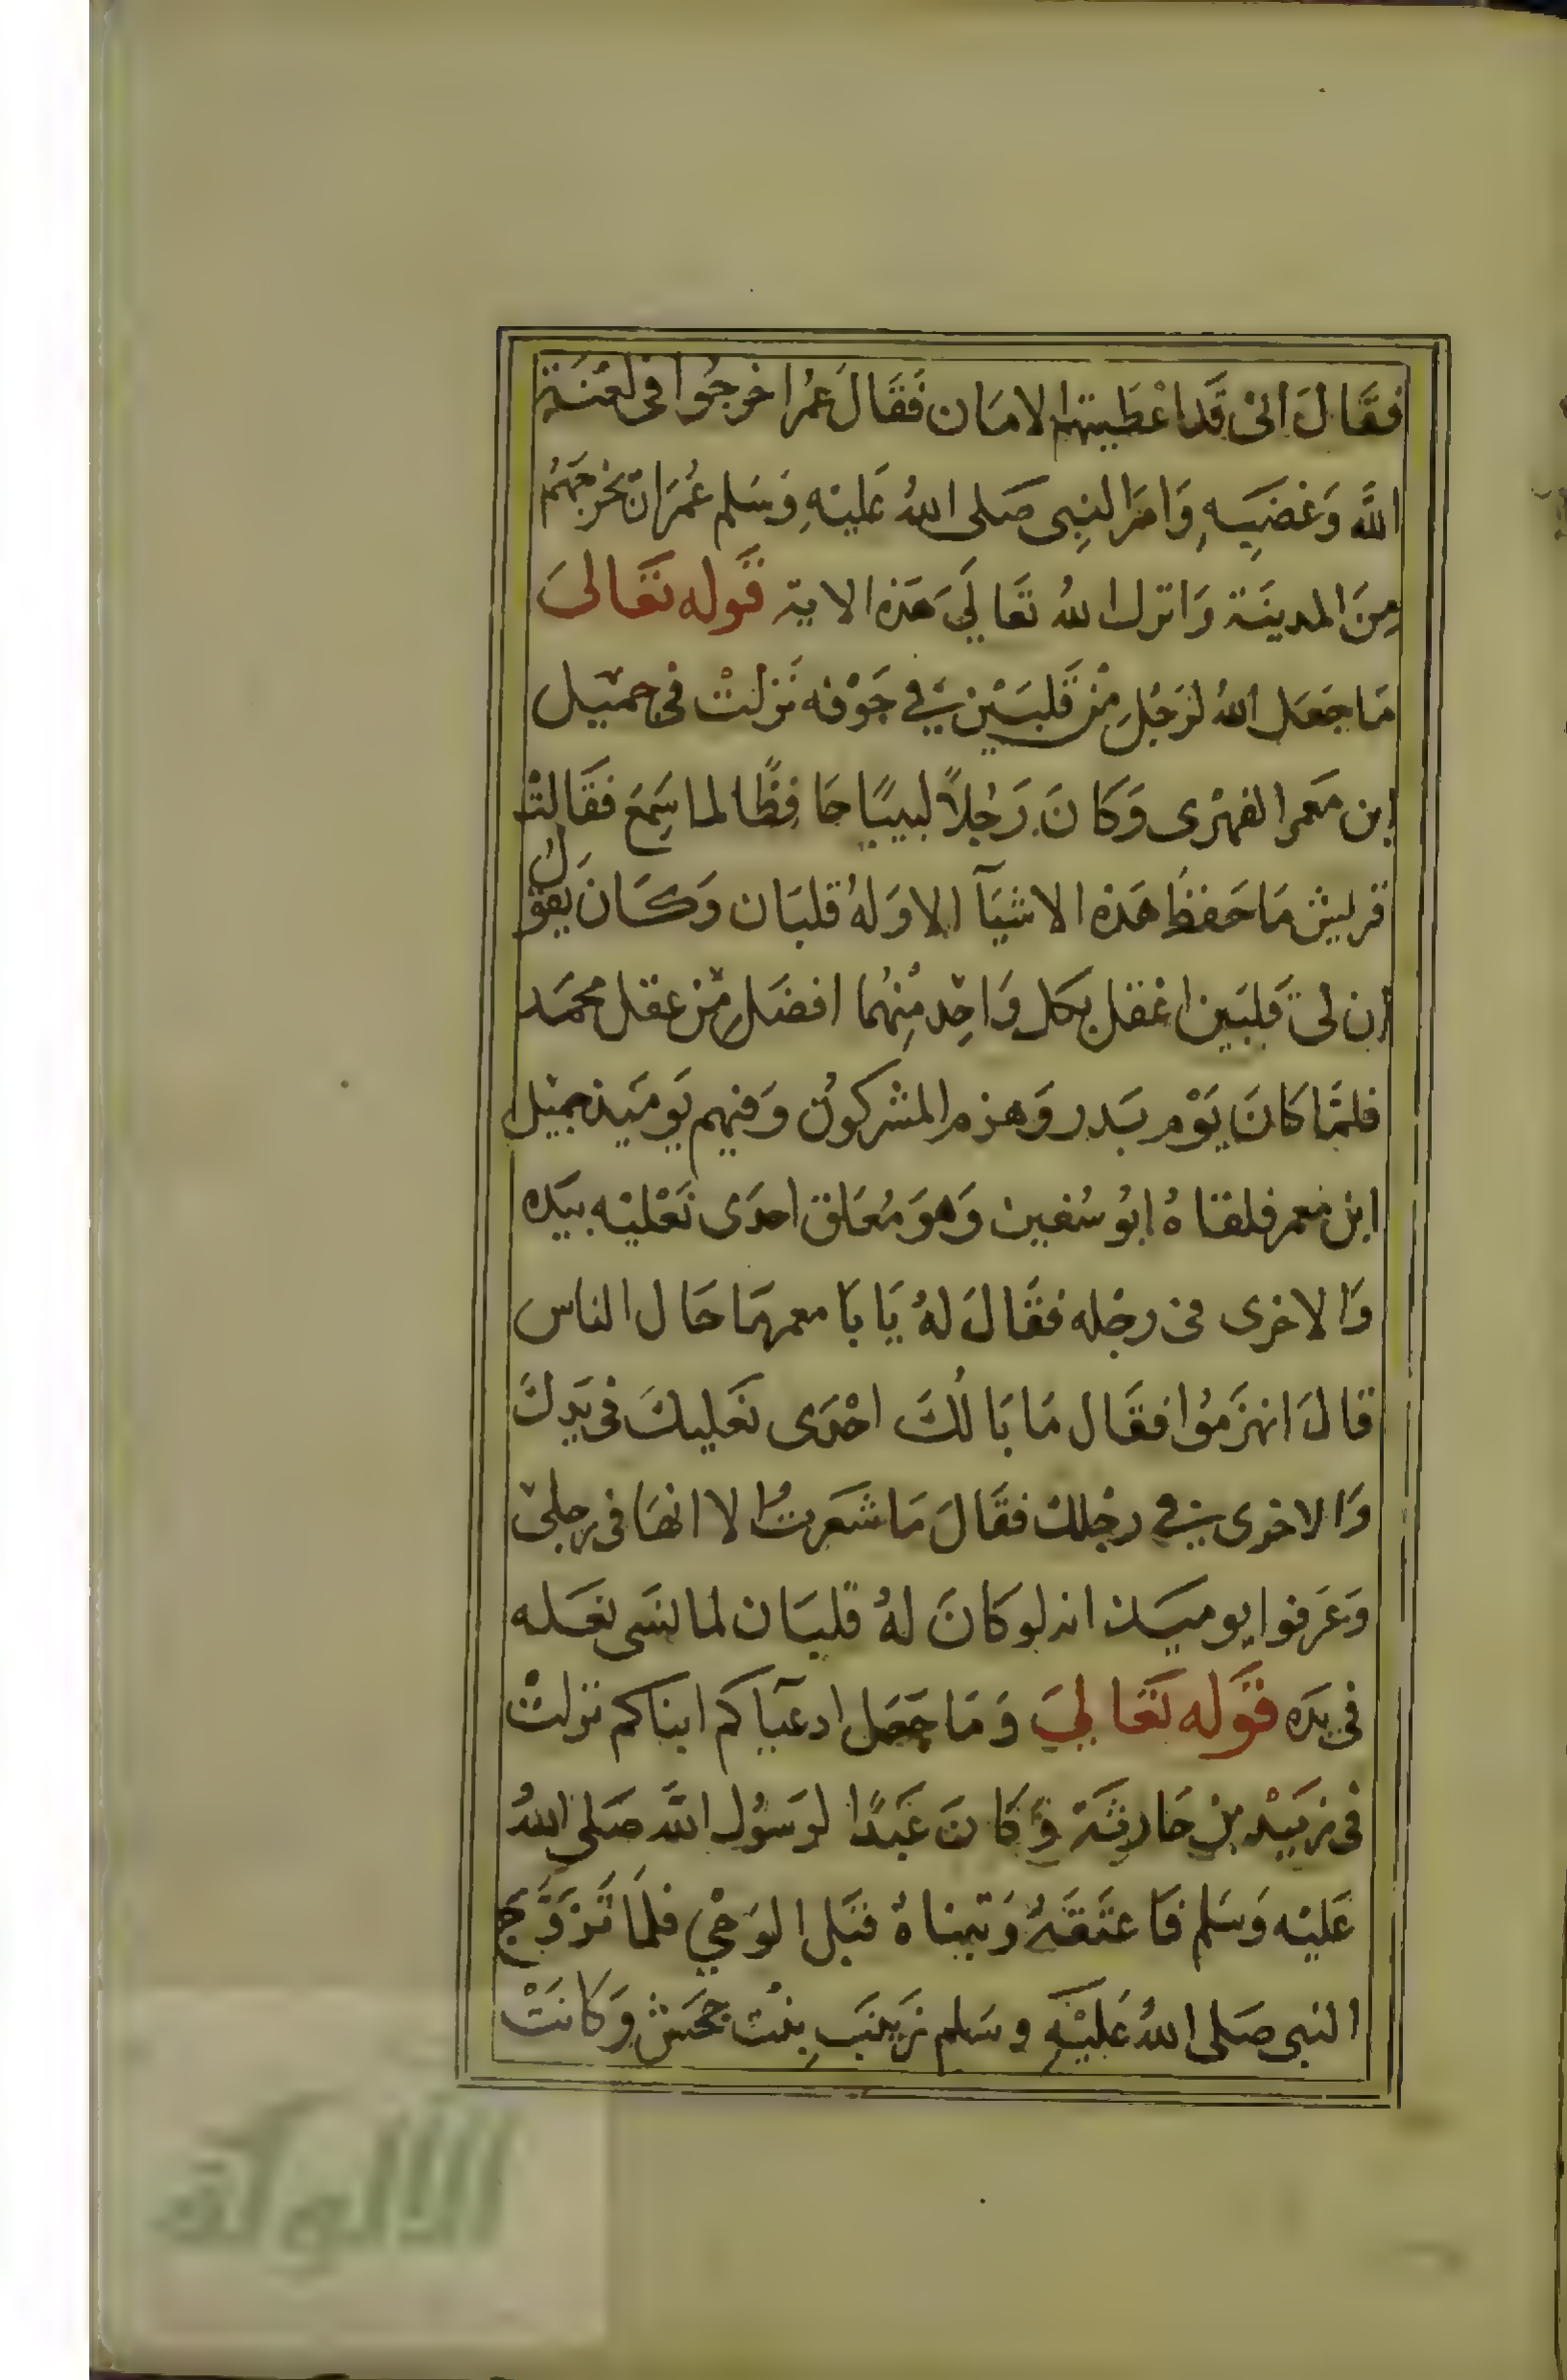 فقَالَ انىْ قَد اعْطَيتهم الامَان فَقَالَ عمُر اخرجوُا فى لعْنَة
اللَّه وَغضَبِهِ وَامَرَ النبِى صَلى اللهُ عَليْهِ وَسَلم عُمَرَ ان يخرجَهُم
مِنَ المدينَة وَانزل اللهُ تعَالَىَ هَذه الاية قَوله تعَالىَ
مَا جَعَل اللهُ لرَجُلِ مِنْ قَلبَيْن فِي جَوْفه نَزلتْ فى جميْل
ابن مَعمر الفهْرى وَكَانَ رَجُلاً لبيبًا حَافِظًا لما سَمِعَ فقَالتْ
قريش مَا حَفظَ هَذه الاشيَآ الا وَلهُ قلبَان وَكَانَ يَقول
ان لىْ قلبَين اعْقل بكل وَاحِد مِنهُمَا افضَل مِنْ عقل محمَد
فلمَّا كَانَ يَوْم بَدر وَهزم المشركوُن وَفيهم يَوميَذ جميْل
ابن معمر فلقاهُ ابُو سُفين وَهوَ مُعَلق احدَى نَعْليْه بيَده
وَالاخرى فى رجْله فقَالَ لهُ يَابَا معمر مَا حَال الناس
قالَ انهزَموُا فقَال مَا بَالُكَ احْدَى نَعَليكَ فى يَدكَ
وَالاخرى فِي رجْلك فقَالَ مَا شَعَرتُ الا انهَا فى رجلىْ
وَعَرفوا يوميَذ انه لو كَانَ لهُ قلبَان لما نسَى نعَله
فى يَده قَوله تعَالِيَ وَمَا جَعَل ادعيَاكم ابناكم نزلتْ
فى زَيْد بنْ حَارثَة وَكَانَ عَبدًا لرَسوُل اللَّه صَلى اللهُ
عَليْه وَسَلم فَاعتَقَهُ وَتبناهُ قبَل الوَحْي فلمَا تَزَوَّجَ
النبى صَلى اللهُ عَليْهِ وسَلم زَينَبَ بِنْت جَحَش وَكَانَتْ
الألوكة